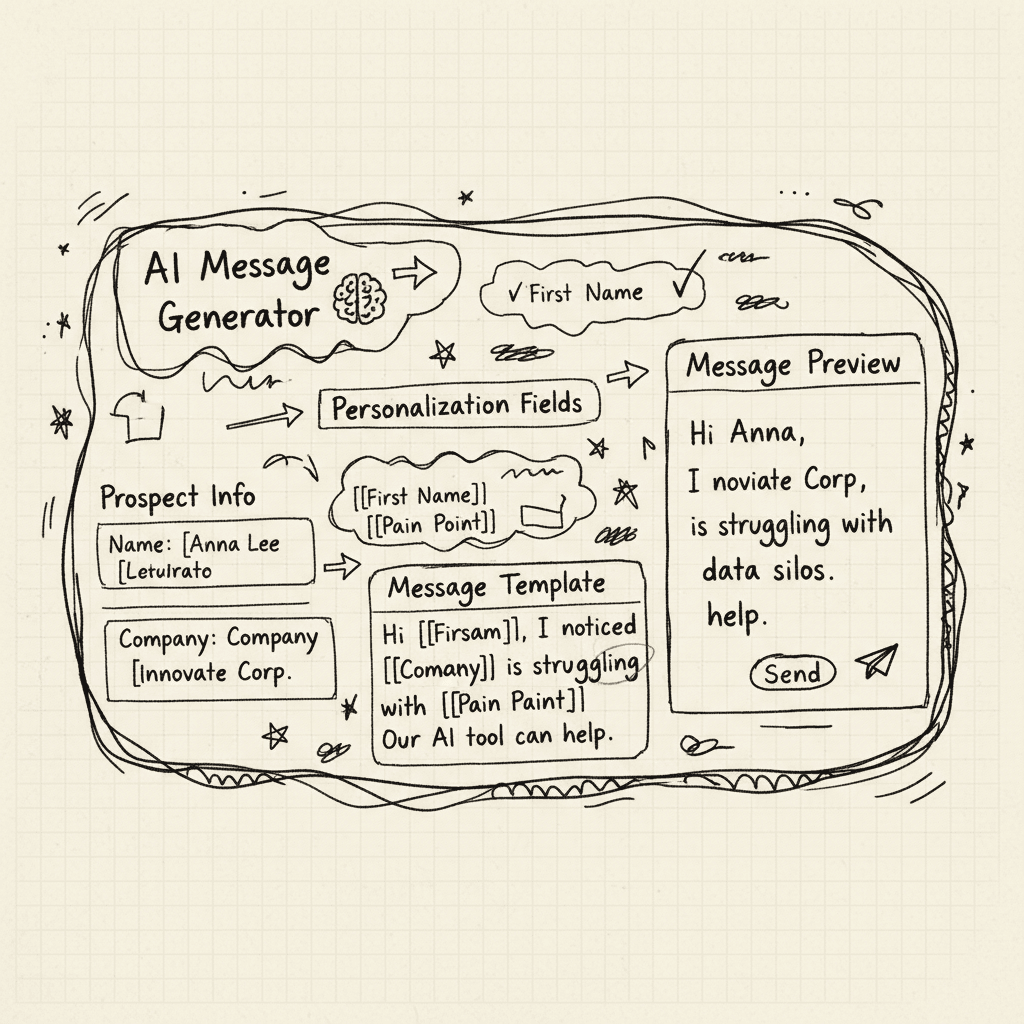 AI Message
Generator
✓ First Name ✓
Personalization Fields
Prospect Info
Name: [Anna Lee
[Letulrato
Company: Company
[Innovate Corp.
[[First Name]]
[[Pain Point]]
Message Template
Hi [[Firsam]], I noticed
[[Comany]] is struggling
with [[Pain Paint]]
Our AI tool can help.
Message Preview
Hi Anna,
I noviate Corp,
is struggling with
data silos.
help.
Send